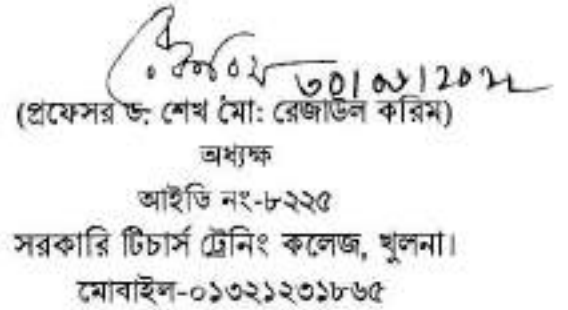 (প্রফেসর ড. শেখ মো: রেজাউল করিম)
অধ্যক্ষ
আইডি নং-৮২২৫
সরকারি টিচার্স ট্রেনিং কলেজ, খুলনা।
মোবাইল-০১৩২১২৩১৮৬৫